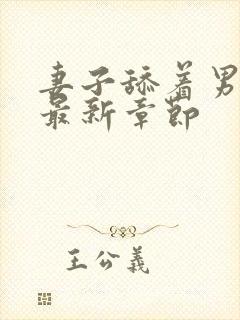 妻子舔着男
最新章节
王公義